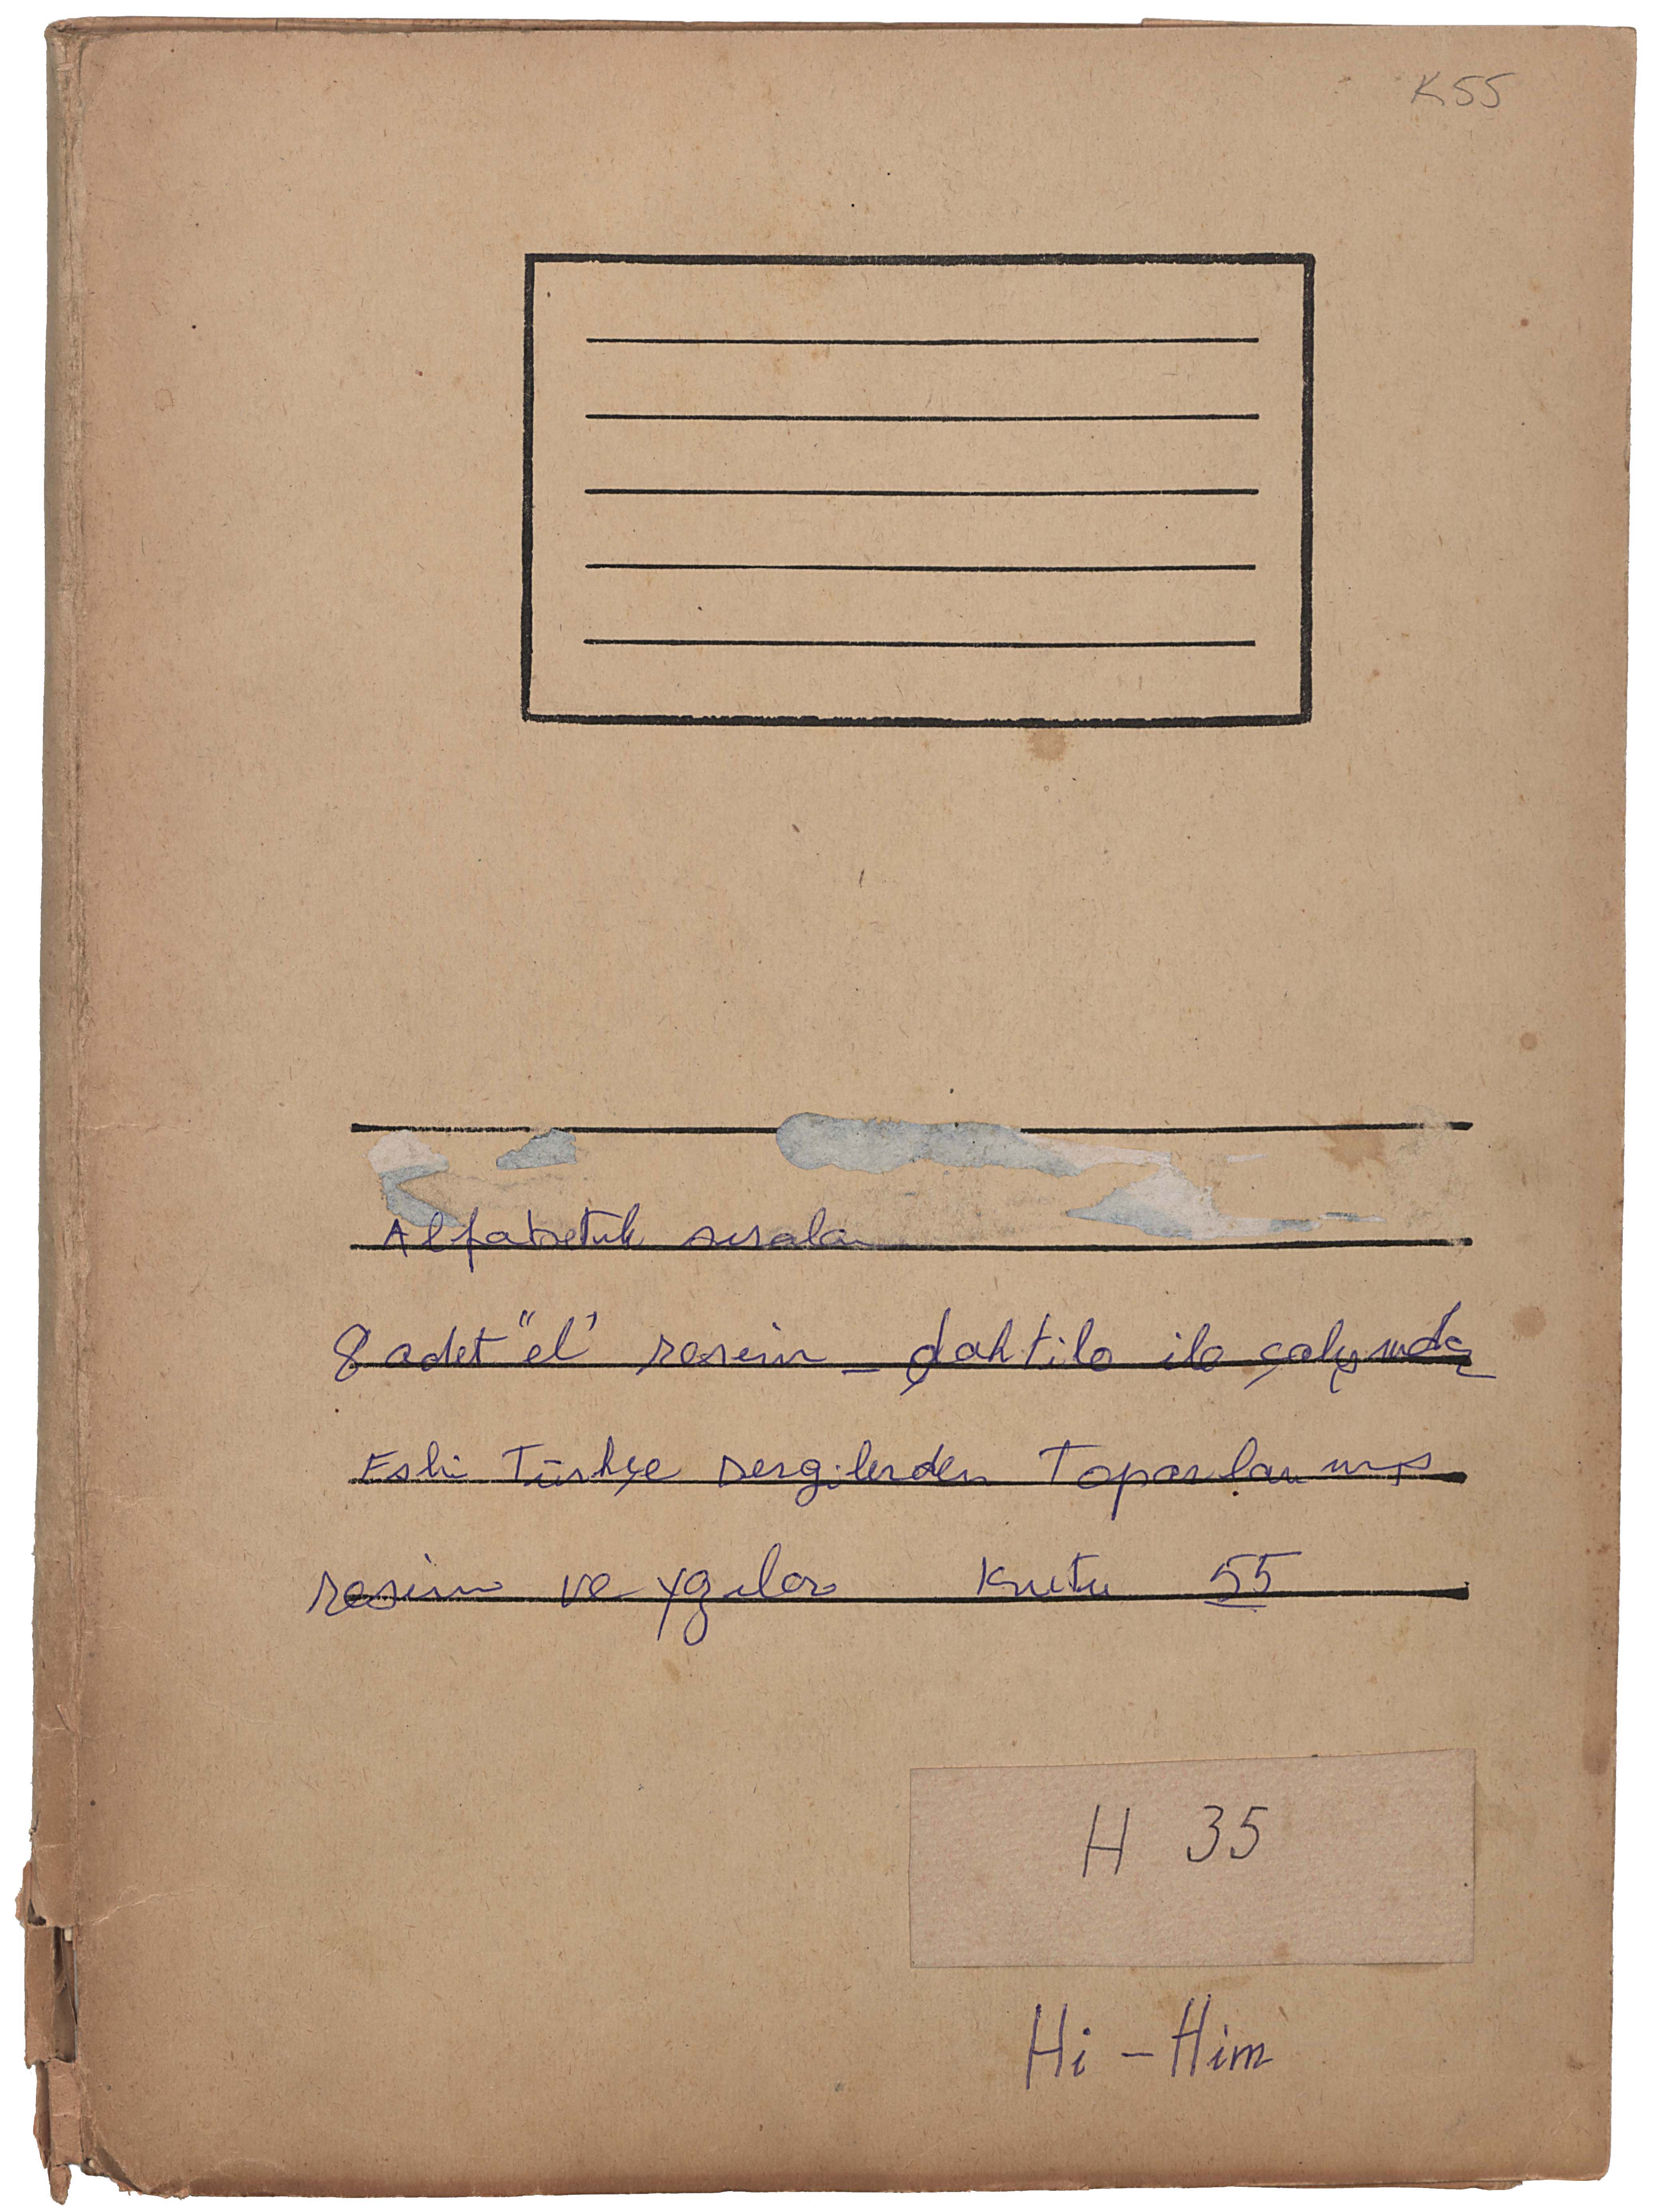 K55
Alfabetik sıralan
8 adet "el" resim - daktilo ile
Eski Türkçe dergilerden Toparlanmış
resim ve yazılar Kutu 55
H 35
Hi - Him